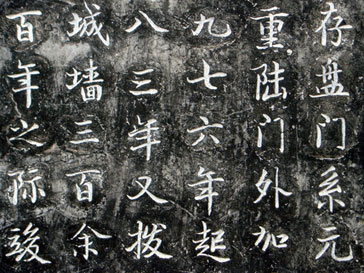 存盘门系元
重陆门外加
九七六年起
八三年又拨
城墙三百余
百年之际竣